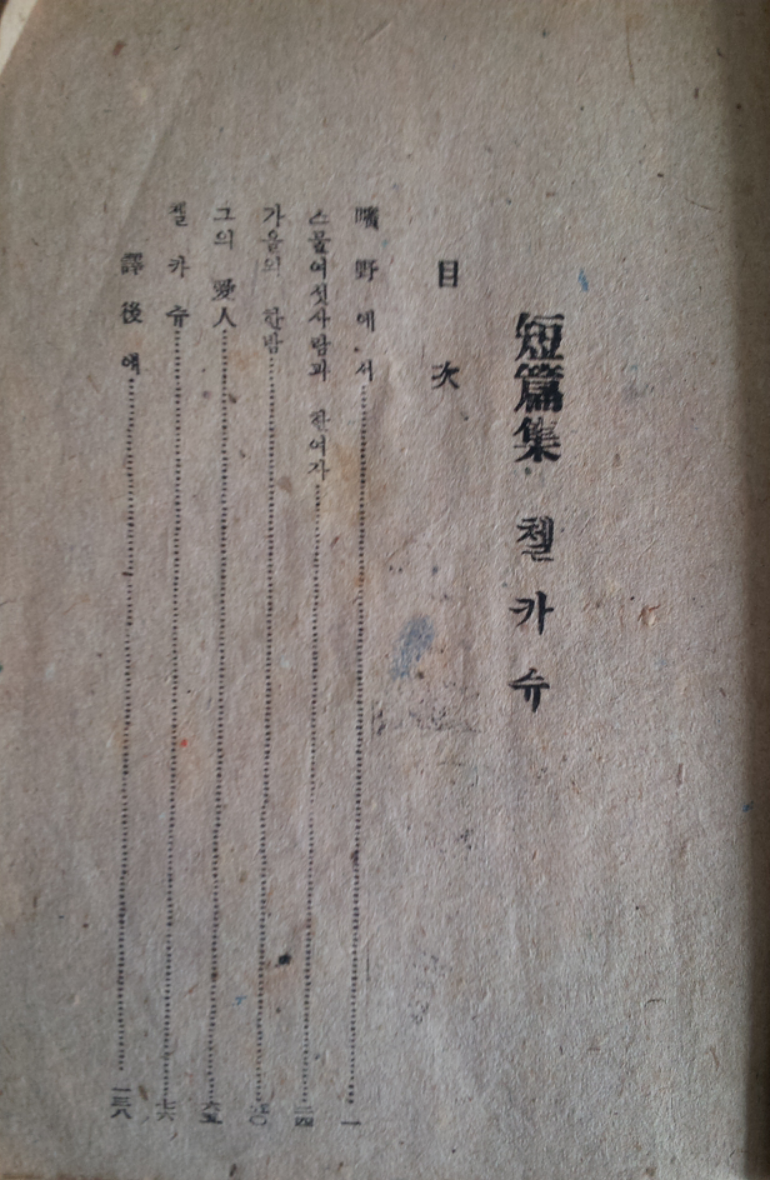 短篇集 첼카슈
目次
曠野에서……一
스물여섯사람과 한여자……二四
가을의 한밤……五〇
그의 愛人……六五
첼카슈……七六
譯後에……一三八